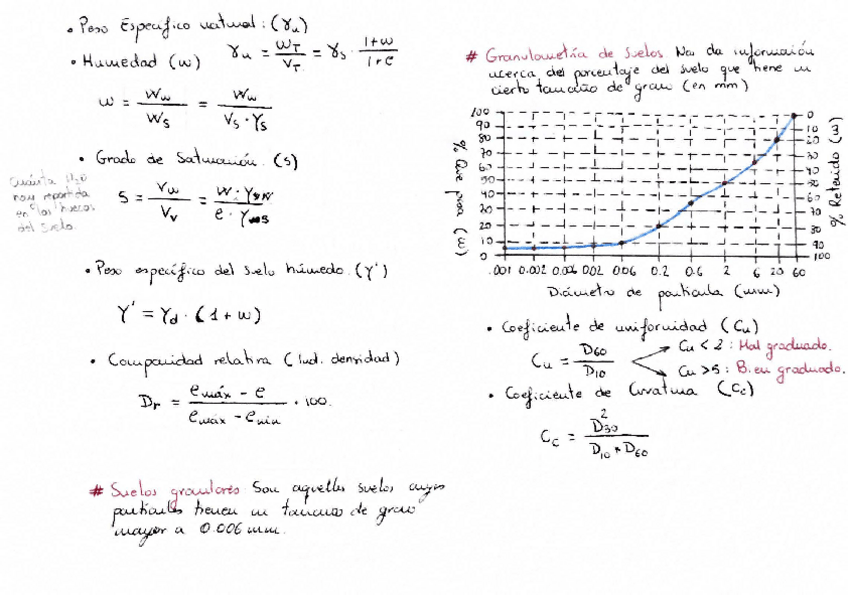 • Peso Específico natural: (γu)
• Humedad (w)
γu = WT / VT = γs · 1+w / 1+e
w = Ww / Ws = Ww / Vs · γs
• Grado de Saturación. (S)
Cuánta H2O
hay repartida
en los huecos
del suelo.
S = Vw / Vv =
• Peso específico del suelo húmedo. (γ')
γ' = γd · (1+w)
• Compacidad relativa (Ind. densidad)
Dr = emáx - e / emáx - emin · 100.
# Suelos granulares: Son aquellos suelos cuyas
partículas tienen un tamaño de grano
mayor a 0.006 mm.
# Granulometría de suelos. Nos da información
acerca del porcentaje del suelo que tiene un
cierto tamaño de grano (en mm)
% Que pasa (w)
100
90
80
70
60
50
40
30
20
10
0
0
10
20
30
40
50
60
70
80
90
100
% Retenido (w)
.001 0.002 0.006 0.02 0.06 0.2 0.6 2 6 20 60
Diámetro de partícula (mm)
• Coeficiente de uniformidad (Cu)
Cu = D60 / D10
Cu < 2 : Mal graduado.
Cu > 5 : Bien graduado.
• Coeficiente de Curvatura (Cc)
Cc = D30² / D10 * D60